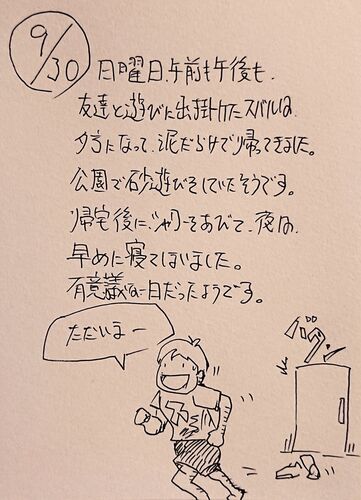 9/30
日曜日、午前も午後も、
友達と遊びに出掛けたスバルは、
夕方になって、泥だらけで帰ってきました。
公園で砂遊びをしていたそうです。
帰宅後に、シャワーをあびて、夜は、
早めに寝てしまいました。
有意議な一日だったようです。
ただいまー
バタッ